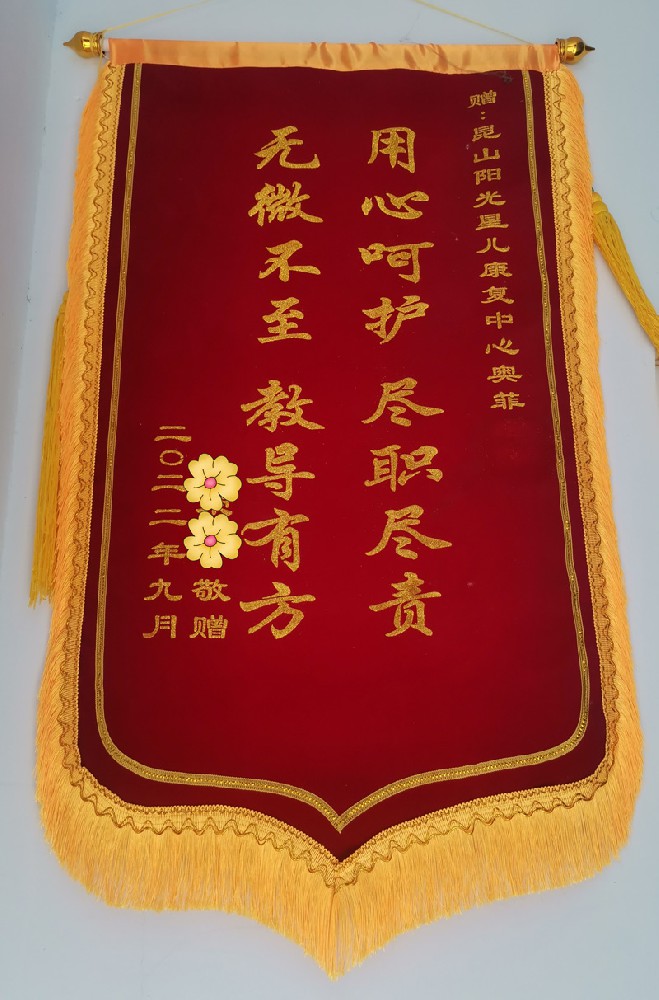 赠：昆山阳光星儿康复中心奥菲
用心呵护 尽职尽责
无微不至 教导有方
敬赠
二〇二二年九月